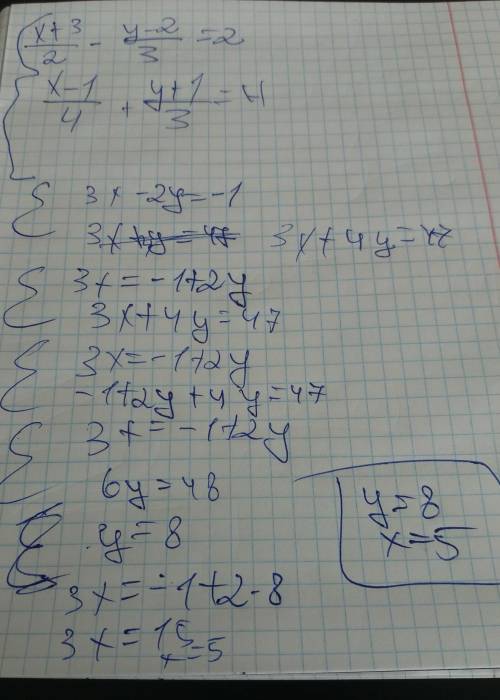 { (x+3)/2 - (y-2)/3 = 2
(x-1)/4 + (y+1)/3 = 4
{ 3x - 2y = -1
3x + 4y = 47
{ 3x = -1+2y
3x+4y=47
{ 3x=-1+2y
-1+2y+4y=47
{ 3x=-1+2y
6y=48
y=8
3x=-1+2·8
3x=15
x=5
y=8
x=5